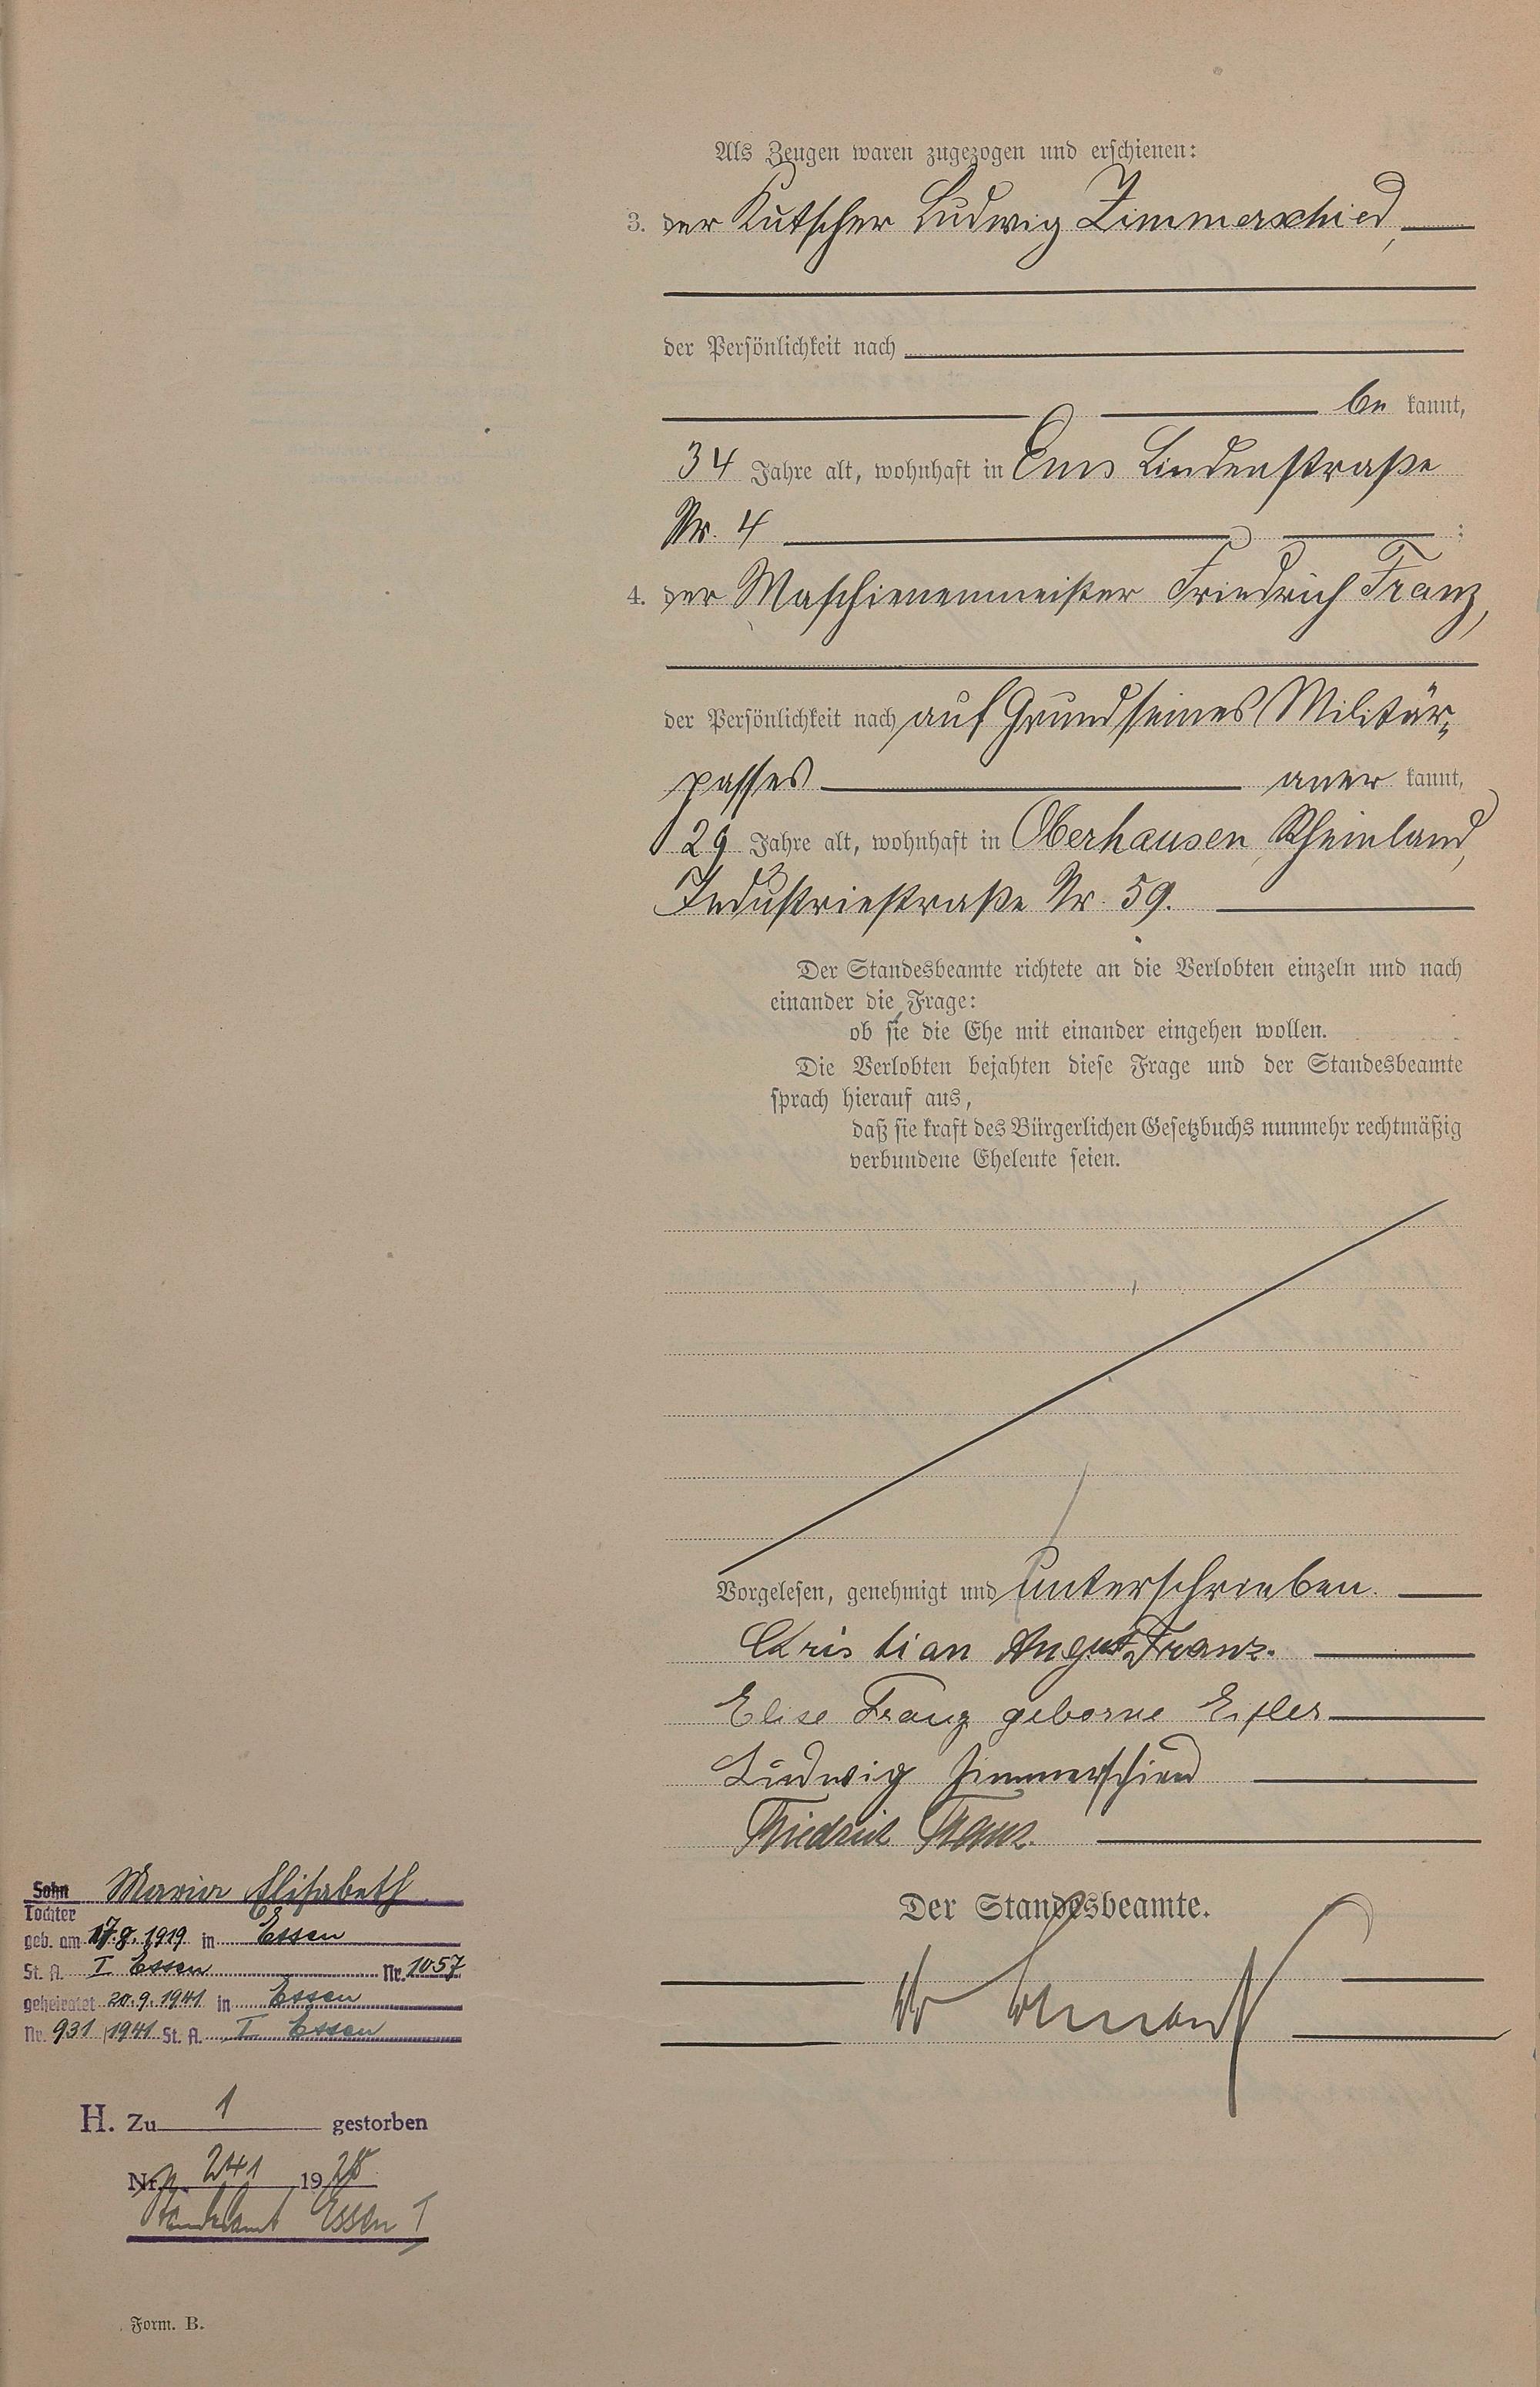 Als Zeugen waren zugezogen und erschienen:
3. der Kutscher Ludwig Zimmerschied,
der Persönlichkeit nach
be kannt,
34 Jahre alt, wohnhaft in Ems Lindenstraße
Nr. 4 ;
4. der Maschienenmeister Friedrich Franz,
der Persönlichkeit nach auf Grund seines Militär-
passes aner kannt,
29 Jahre alt, wohnhaft in Oberhausen, Rheinland,
Industriestraße Nr. 59.
Der Standesbeamte richtete an die Verlobten einzeln und nach
einander die Frage:
ob sie die Ehe mit einander eingehen wollen.
Die Verlobten bejahten diese Frage und der Standesbeamte
sprach hierauf aus,
daß sie kraft des Bürgerlichen Gesetzbuchs nunmehr rechtmäßig
verbundene Eheleute seien.
Vorgelesen, genehmigt und unterschrieben.
Kristian August Franz.
Elise Franz geborne Eifler
Ludwig Zimmerschied
Friedrich Franz.
Der Standesbeamte.
Sohn Maria Elisabeth
Tochter
geb. am 17.8.1919 in Essen
St. A. I Essen Nr. 1057
geheiratet 20.9.1941 in Essen
Nr. 931/1941 St. A. I Essen
H. Zu 1 gestorben
Nr. 241 1928
Standesamt Essen I
Form. B.